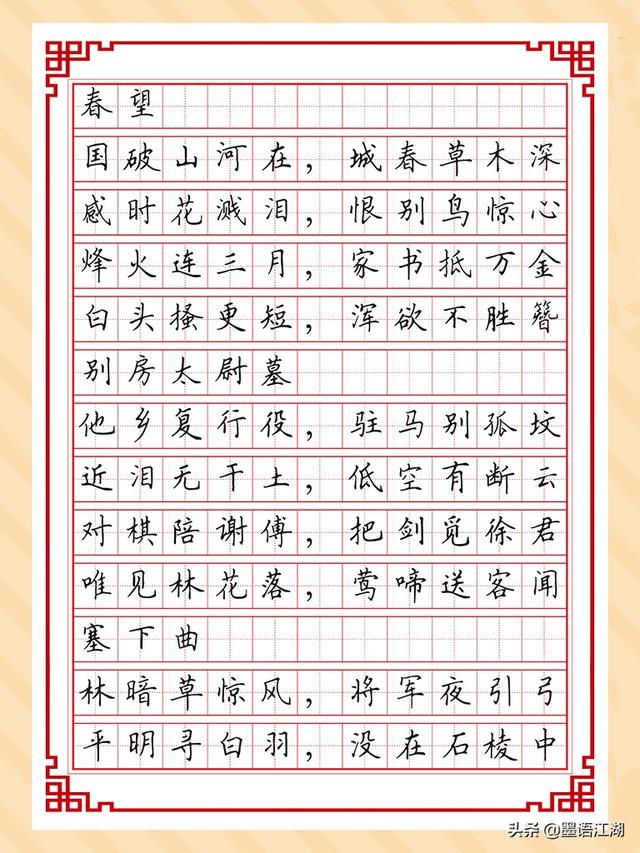 春望
国破山河在，城春草木深
感时花溅泪，恨别鸟惊心
烽火连三月，家书抵万金
白头搔更短，浑欲不胜簪
别房太尉墓
他乡复行役，驻马别孤坟
近泪无干土，低空有断云
对棋陪谢傅，把剑觅徐君
唯见林花落，莺啼送客闻
塞下曲
林暗草惊风，将军夜引弓
平明寻白羽，没在石棱中
头条 @墨语江湖